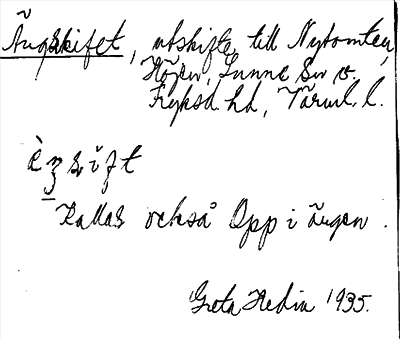 Ängskiftet, utskifte till Nytomten,
Högen, Sunne sn v.
Fryksd. hd, Värml. l.
èŋsift
Kallas också Opp i ängen.
Greta Hedin 1935.